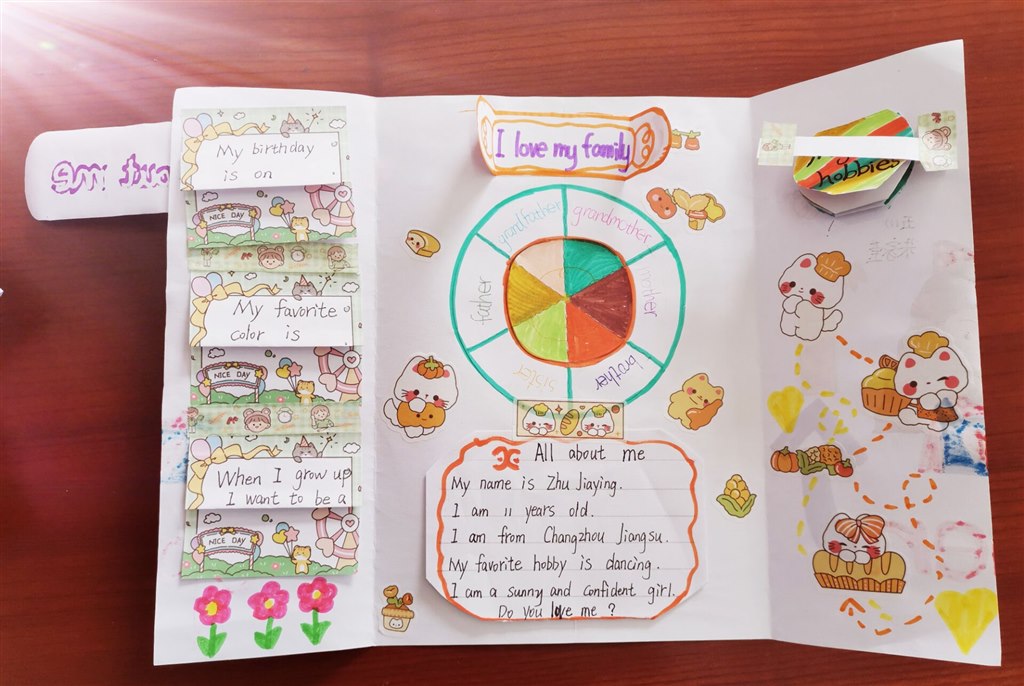 My birthday
is on
NICE DAY
My favorite
color is
NICE DAY
When I grow up
I want to be a
NICE DAY
I love my family
grandfather
grandmother
father
mother
sister
brother
All about me
My name is Zhu Jiaying.
I am 11 years old.
I am from Changzhou Jiangsu.
My favorite hobby is dancing.
I am a sunny and confident girl.
Do you love me ?
hobbies